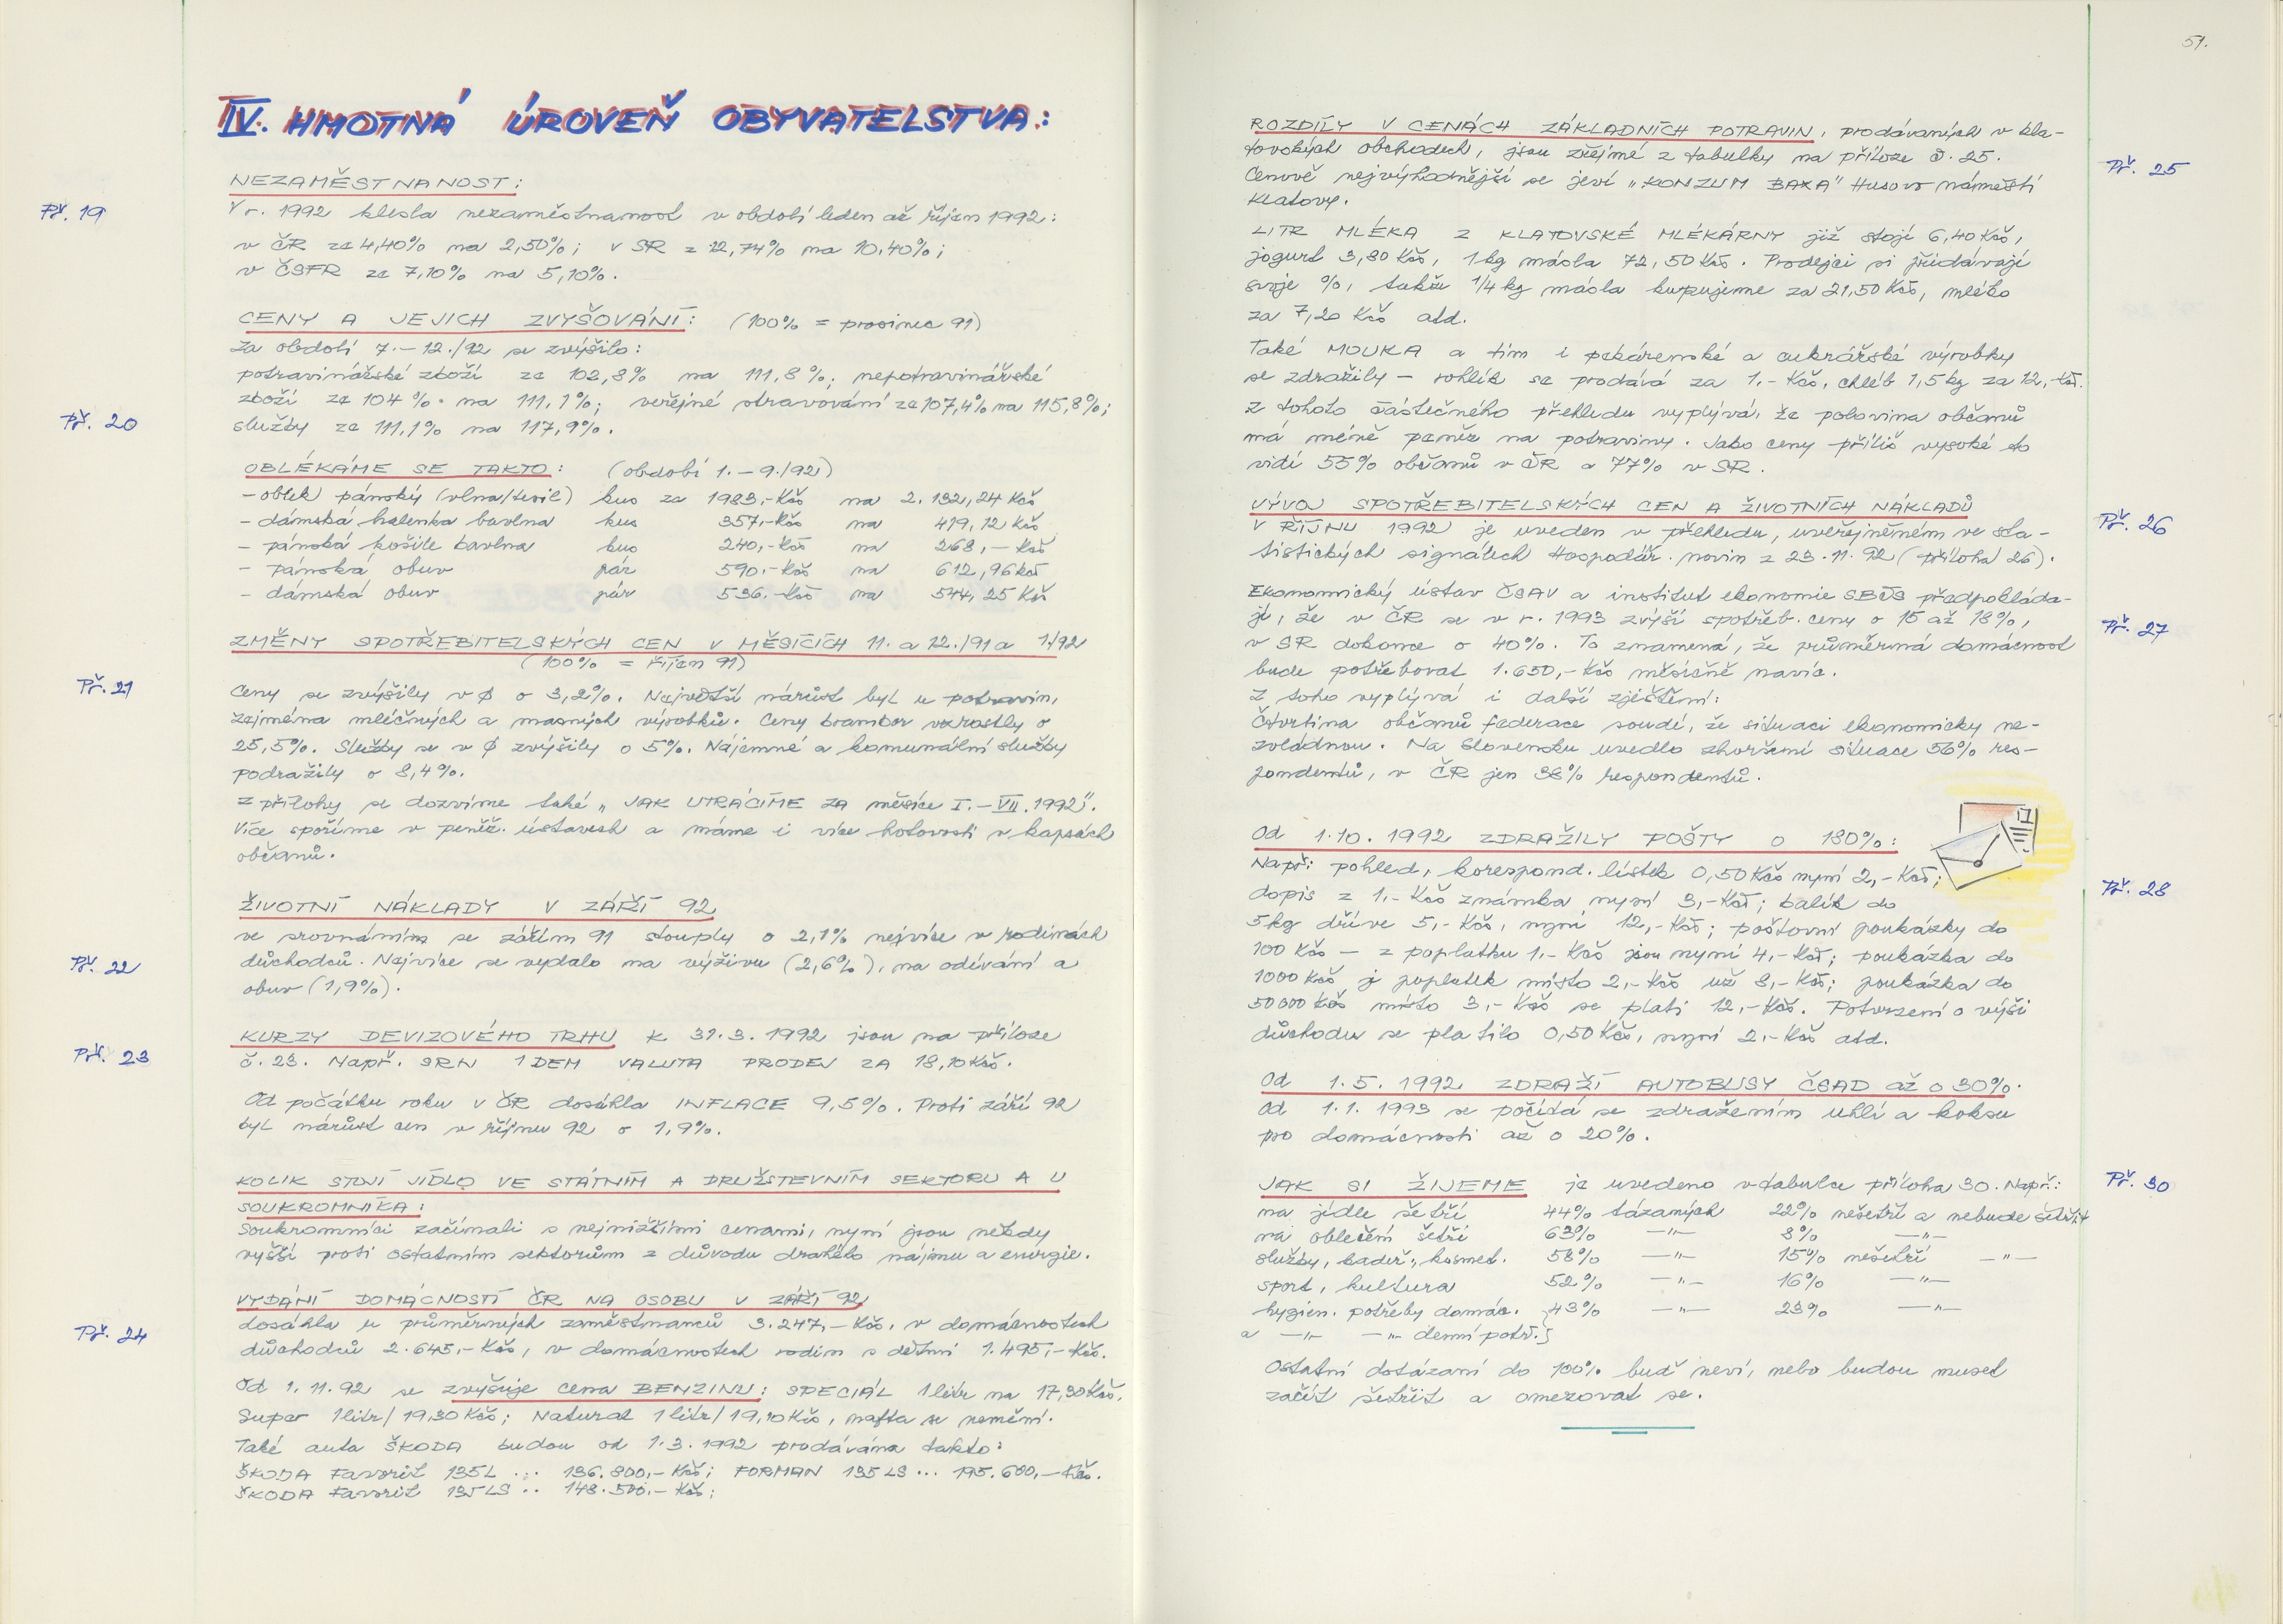 IV. HMOTNÁ ÚROVEŇ OBYVATELSTVA:
NEZAMĚSTNANOST:
Př. 19
V r. 1992 klesla nezaměstnanost v období leden až říjen 1992:
v ČR ze 4,40% na 2,50%; v SR z 12,74% na 10,40%;
v ČSFR ze 7,10% na 5,10%.
CENY A JEJICH ZVYŠOVÁNÍ: (100% = prosinec 91)
Za období 7.-12./92 se zvýšilo:
potravinářské zboží ze 102,8% na 111,8%; nepotravinářské
zboží ze 104% na 111,1%; veřejné stravování ze 107,4% na 115,8%;
Př. 20
služby ze 111,1% na 117,9%.
OBLÉKÁME SE TAKTO: (období 1.-9./92)
- oblek pánský (vlna/tesil) kus za 1983,-Kčs na 2.132,24 Kčs
- dámská halenka bavlna kus 357,-Kčs na 419,12 Kčs
- pánská košile bavlna kus 240,-Kčs na 268,- Kčs
- pánská obuv pár 590,-Kčs na 612,96 Kčs
- dámská obuv pár 536,-Kčs na 544,25 Kčs
ZMĚNY SPOTŘEBITELSKÝCH CEN V MĚSÍCÍCH 11. a 12./91 a 1/92
(100% = říjen 91)
Př. 21
Ceny se zvýšily v ø o 3,2%. Největší nárůst byl u potravin,
zejména mléčných a masných výrobků. Ceny brambor vzrostly o
25,5%. Služby se v ø zvýšily o 5%. Nájemné a komunální služby
podražily o 8,4%.
Z přílohy se dozvíme také „JAK UTRÁCÍME ZA měsíce I.-VII. 1992".
Více spoříme v peněž. ústavech a máme i více hotovosti v kapsách
občanů.
ŽIVOTNÍ NÁKLADY V ZÁŘÍ 92
ve srovnáním se zářím 91 stouply o 2,1% nejvíce v rodinách
Př. 22
důchodců. Nejvíce se vydalo na výživu (2,6%), na odívání a
obuv (1,9%).
KURZY DEVIZOVÉHO TRHU k 31.3.1992 jsou na příloze
Př. 23
č. 23. Např. SRN 1 DEM VALUTA PRODEJ ZA 18,10 Kčs.
Od počátku roku v ČR dosáhla INFLACE 9,5%. Proti září 92
byl nárůst cen v říjnu 92 o 1,9%.
KOLIK STOJÍ JÍDLO VE STÁTNÍM A DRUŽSTEVNÍM SEKTORU A U
SOUKROMNÍKA:
Soukromníci začínali s nejnižšími cenami, nyní jsou někdy
vyšší proti ostatním sektorům z důvodu drahého nájmu a energie.
VYDÁNÍ DOMÁCNOSTÍ ČR NA OSOBU V ZÁŘÍ 92
Př. 24
dosáhla u průměrných zaměstnanců 3.247,-Kčs, v domácnostech
důchodců 2.645,-Kčs, v domácnostech rodin s dětmi 1.495,-Kčs.
Od 1.11.92 se zvyšuje cena BENZINU: SPECIÁL 1 litr na 17,30 Kčs,
Super 1 litr/19,30 Kčs; Natural 1 litr/19,10 Kčs, nafta se nemění.
Také auta ŠKODA budou od 1.3.1992 prodávána takto:
ŠKODA Favorit 135L ... 136.800,-Kčs; FORMAN 135 LS ... 195.600,-Kčs.
ŠKODA Favorit 135LS .. 148.500,-Kčs;
51.
ROZDÍLY V CENÁCH ZÁKLADNÍCH POTRAVIN, prodávaných v kla-
tovských obchodech, jsou zřejmé z tabulky na příloze č. 25.
Př. 25
Cenově nejvýhodnější se jeví „KONZUM BAXA" Husovo náměstí
Klatovy.
LITR MLÉKA Z KLATOVSKÉ MLÉKÁRNY již stojí 6,40 Kčs,
jogurt 3,80 Kčs, 1 kg másla 72,50 Kčs. Prodejci si přidávají
svoje %, takže 1/4 kg másla kupujeme za 21,50 Kčs, mléko
za 7,20 Kčs atd.
Také MOUKA a tím i pekárenské a cukrářské výrobky
se zdražily - rohlík se prodává za 1,- Kčs, chléb 1,5 kg za 12,-Kčs.
Z tohoto částečného přehledu vyplývá, že polovina občanů
má méně peněz na potraviny. Jako ceny příliš vysoké to
vidí 55% občanů v ČR a 77% v SR.
VÝVOJ SPOTŘEBITELSKÝCH CEN A ŽIVOTNÍCH NÁKLADŮ
Př. 26
V ŘÍJNU 1992 je uveden v přehledu, uveřejněném ve sta-
tistických signálech Hospodář. novin z 23.11.92 (příloha 26).
Ekonomický ústav ČSAV a institut ekonomie SBČS předpokláda-
jí, že v ČR se v r. 1993 zvýší spotřeb. ceny o 15 až 18%,
Př. 27
v SR dokonce o 40%. To znamená, že průměrná domácnost
bude potřebovat 1.650,-Kčs měsíčně navíc.
Z toho vyplývá i další zjištění:
Čtvrtina občanů federace soudí, že situaci ekonomicky ne-
zvládnou. Na Slovensku uvedlo zhoršení situace 56% res-
pondentů, v ČR jen 38% respondentů.
Od 1.10.1992 ZDRAŽILY POŠTY O 180%:
Např: pohled, korespond. lístek 0,50 Kčs nyní 2,-Kčs;
Př. 28
dopis z 1,-Kčs známka nyní 3,-Kčs; balík do
5 kg dříve 5,-Kčs, nyní 12,-Kčs; poštovní poukázky do
100 Kčs - z poplatku 1,-Kčs jsou nyní 4,-Kčs; poukázka do
1000 Kčs je poplatek místo 2,-Kčs už 8,-Kčs; poukázka do
50000 Kčs místo 3,-Kčs se platí 12,-Kčs. Potvrzení o výši
důchodu se platilo 0,50 Kčs, nyní 2,-Kčs atd.
Od 1.5.1992 ZDRAŽÍ AUTOBUSY ČSAD až o 30%.
Od 1.1.1993 se počítá se zdražením uhlí a koksu
pro domácnosti až o 20%.
JAK SI ŽIJEME je uvedeno v tabulce příloha 30. Např.:
Př. 30
na jídle šetří 44% tázaných 22% nešetří a nebude šetřit
na oblečení šetří 63% -"- 8% -"-
služby, kadeř., kosmet. 58% -"- 15% nešetří -"-
sport, kultura 52% -"- 16% -"-
hygien. potřeby domác. } 43% -"- 23% -"-
a -"- -"- denní potř. }
Ostatní dotázaní do 100% buď neví, nebo budou muset
začít šetřit a omezovat se.